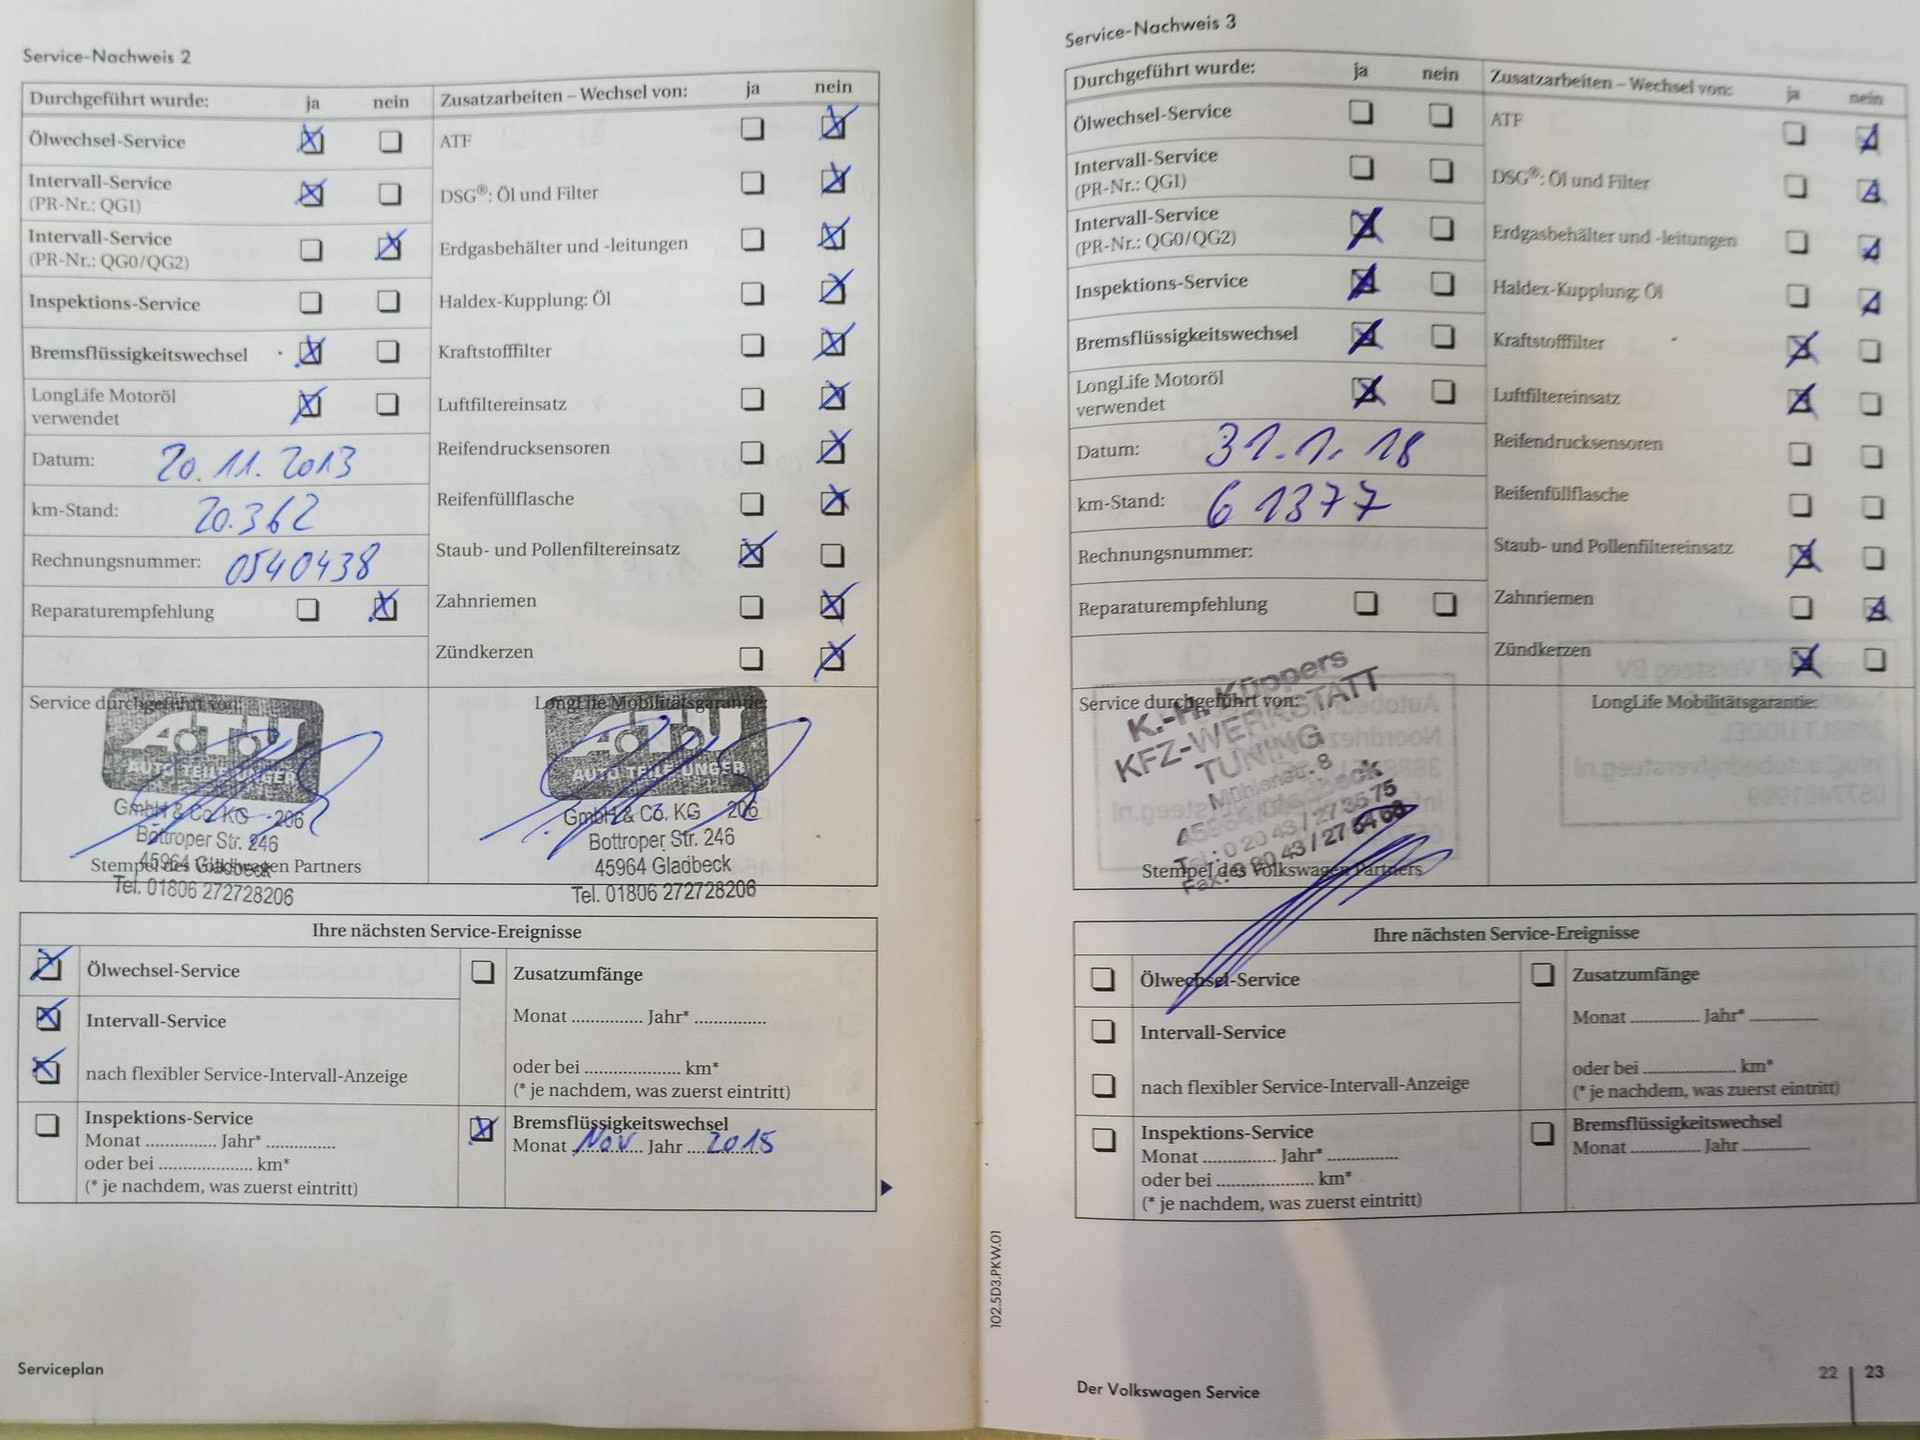 Service-Nachweis 2
Durchgeführt wurde: ja nein
Ölwechsel-Service
Intervall-Service
(PR-Nr.: QG1)
Intervall-Service
(PR-Nr.: QG0/QG2)
Inspektions-Service
Bremsflüssigkeitswechsel
LongLife Motoröl
verwendet
Datum: 20.11.2013
km-Stand: 20.362
Rechnungsnummer: 0540438
Reparaturempfehlung
Zusatzarbeiten – Wechsel von: ja nein
ATF
DSG®: Öl und Filter
Erdgasbehälter und -leitungen
Haldex-Kupplung: Öl
Kraftstofffilter
Luftfiltereinsatz
Reifendrucksensoren
Reifenfüllflasche
Staub- und Pollenfiltereinsatz
Zahnriemen
Zündkerzen
Service durchgeführt von:
A.T.U
AUTO TEILE UNGER
GmbH & Co. KG 206
Bottroper Str. 246
45964 Gladbeck
Stempel des Volkswagen Partners
Tel. 01806 272728206
LongLife Mobilitätsgarantie:
A.T.U
AUTO TEILE UNGER
GmbH & Co. KG 206
Bottroper Str. 246
45964 Gladbeck
Tel. 01806 272728206
Ihre nächsten Service-Ereignisse
Ölwechsel-Service
Intervall-Service
nach flexibler Service-Intervall-Anzeige
Inspektions-Service
Monat .............. Jahr* ..............
oder bei ................... km*
(* je nachdem, was zuerst eintritt)
Zusatzumfänge
Monat .............. Jahr* ..............
oder bei ................... km*
(* je nachdem, was zuerst eintritt)
Bremsflüssigkeitswechsel
Monat Nov Jahr 2015
Serviceplan
Service-Nachweis 3
Durchgeführt wurde: ja nein
Ölwechsel-Service
Intervall-Service
(PR-Nr.: QG1)
Intervall-Service
(PR-Nr.: QG0/QG2)
Inspektions-Service
Bremsflüssigkeitswechsel
LongLife Motoröl
verwendet
Datum: 31.1.18
km-Stand: 61377
Rechnungsnummer:
Reparaturempfehlung
Zusatzarbeiten – Wechsel von: ja nein
ATF
DSG®: Öl und Filter
Erdgasbehälter und -leitungen
Haldex-Kupplung: Öl
Kraftstofffilter
Luftfiltereinsatz
Reifendrucksensoren
Reifenfüllflasche
Staub- und Pollenfiltereinsatz
Zahnriemen
Zündkerzen
Service durchgeführt von:
K.-H. Küppers
KFZ-WERKSTATT
TUNING
Tel.: 0 20 43 / 27 35 75
Fax: 0 20 43 / 27 64 68
Stempel des Volkswagen Partners
LongLife Mobilitätsgarantie:
Ihre nächsten Service-Ereignisse
Ölwechsel-Service
Intervall-Service
nach flexibler Service-Intervall-Anzeige
Inspektions-Service
Monat .............. Jahr* ..............
oder bei ................... km*
(* je nachdem, was zuerst eintritt)
Zusatzumfänge
Monat .............. Jahr* ..............
oder bei ................... km*
(* je nachdem, was zuerst eintritt)
Bremsflüssigkeitswechsel
Monat .............. Jahr ..............
102.5D3.PKW.01
Der Volkswagen Service
22 | 23